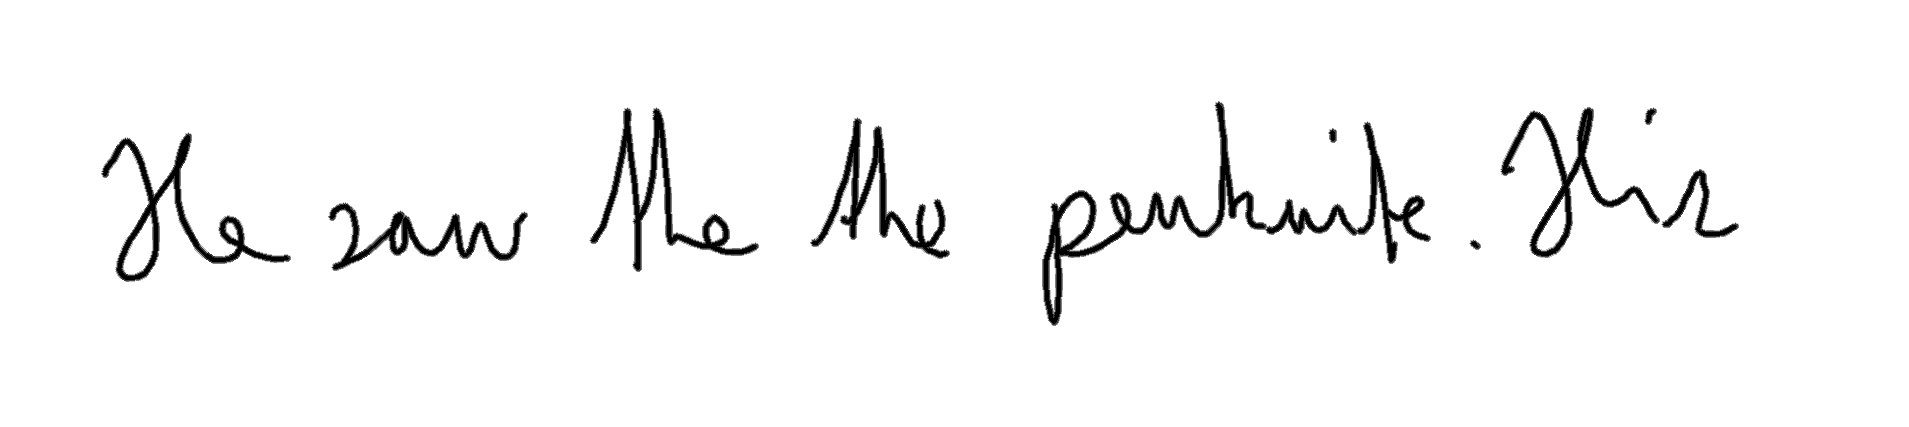 He saw the the penknife. His